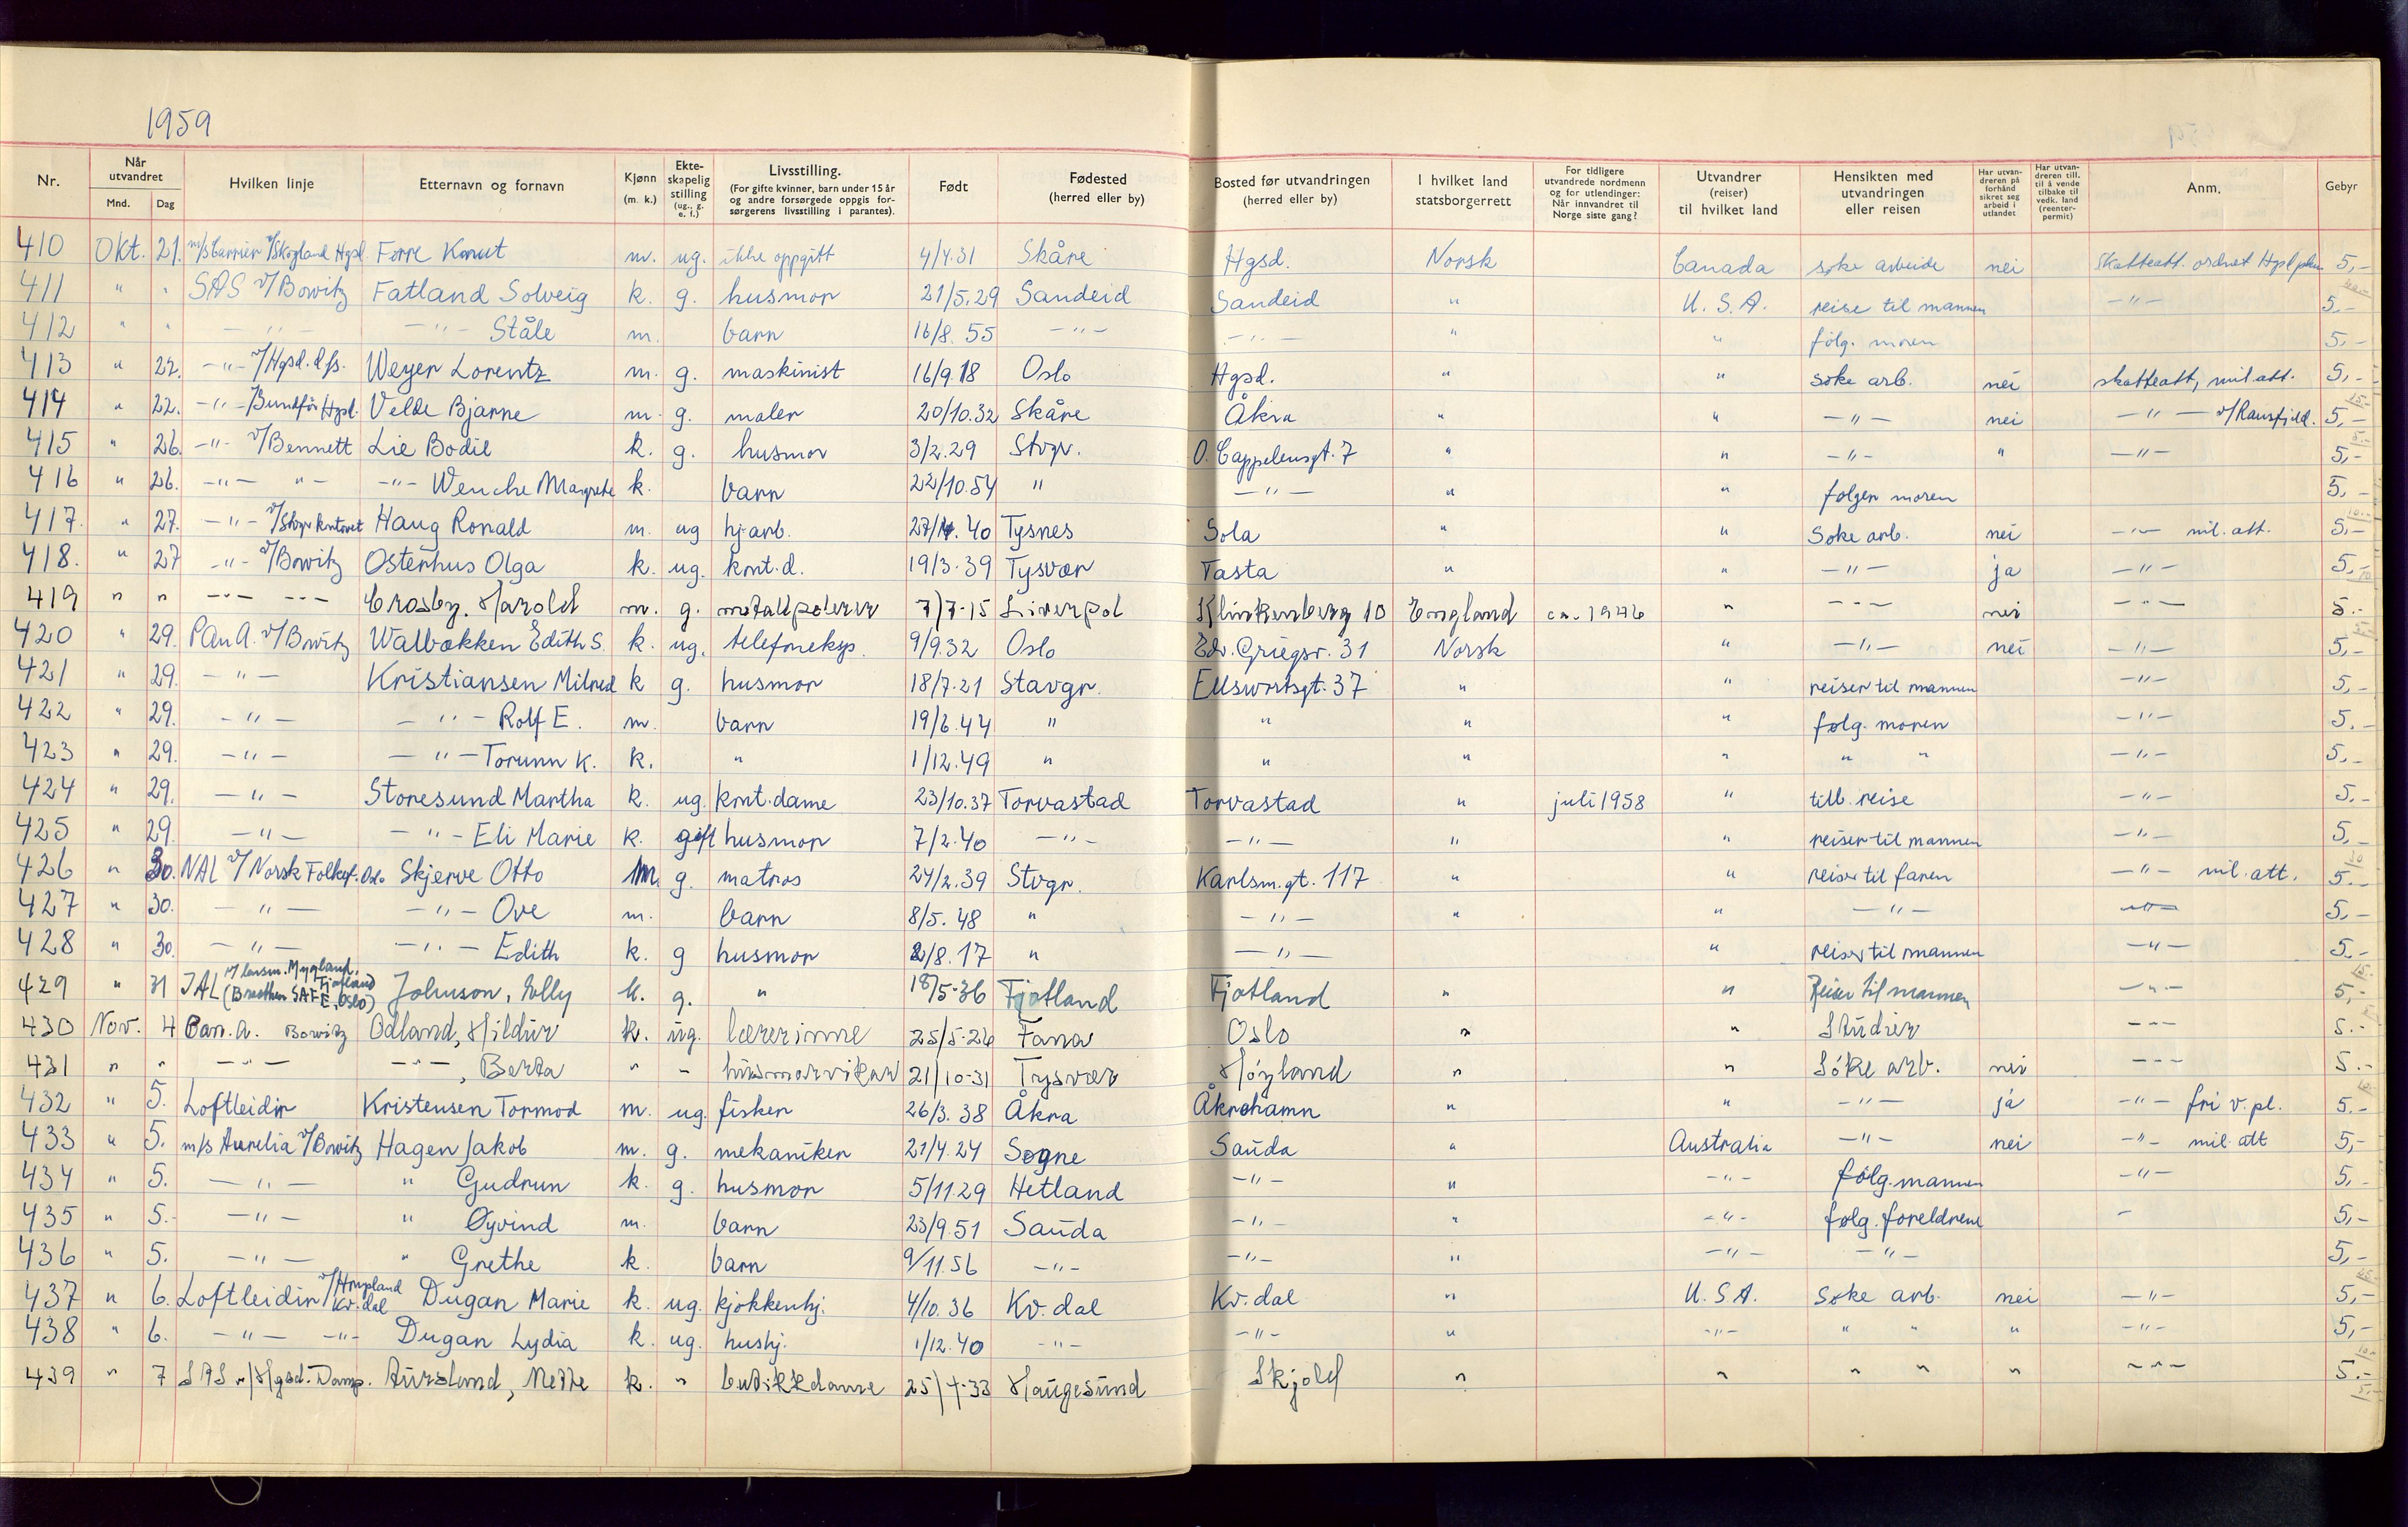 1959
Nr. Når utvandret Mnd. Dag Hvilken linje Etternavn og fornavn Kjønn (m. k.) Ekteskapelig stilling (ug., g. e. f.) Livsstilling. (For gifte kvinner, barn under 15 år og andre forsørgede oppgis forsørgerens livsstilling i parantes). Født Fødested (herred eller by) Bosted før utvandringen (herred eller by) I hvilket land statsborgerrett For tidligere utvandrede nordmenn og for utlendinger: Når innvandret til Norge siste gang? Utvandrer (reiser) til hvilket land Hensikten med utvandringen eller reisen Har utvandreren på forhånd sikret seg arbeid i utlandet Har utvandreren till. til å vende tilbake til vedk. land (reenterpermit) Anm. Gebyr
410 Okt. 21. m/s Carrier v/Skogland Hgsd. Førre Knut m. ug. ikke oppgitt 4/4.31 Skåre Hgsd. Norsk Canada søke arbeide nei Skatteatt. ordnet Hgsd 5,-
411 " " SAS v/Bowitz Fatland Solveig k. g. husmor 21/5.29 Sandeid Sandeid " U.S.A. reise til mannen -"- 5.-
412 " " -"- -"- Ståle m. barn 16/8.55 -"- -"- " " følg. moren 5,-
413 " 22. -"- v/Hgsd. dps. Weyer Lorentz m. g. maskinist 16/9.18 Oslo Hgsd. " " søke arb. nei skatteatt, mil att. 5,-
414 " 22. -"- Hgsd. Velde Bjarne m. g. maler 20/10.32 Skåre Åkra " " -"- nei -"- 5,-
415 " 26. -"- v/Bennett Lie Bodil k. g. husmor 3/2.29 Stvgr. O. Cappelensgt. 7 " " -"- " -"- 5,-
416 " 26. -"- "- -"- Wenche Margrete k. barn 22/10.54 " -"- " " følger moren 5,-
417. " 27. -"- v/Stvgr kontoret Haug Ronald m. ug hj.arb. 27/4.40 Tysnes Sola " " Søke arb. nei -"- mil. att. 5,-
418. " 27 -"- v/Bowitz Østerhus Olga k. ug. knt.d. 19/3.39 Tysvær Tasta " " -"- ja -"- 5,-
419 " " -"- -"- Crosby, Harold m. g. metallpolerer 7/7-15 Liverpol Klinkenberg 10 England ca. 1946 " -"- nei -"- 5.-
420 " 29. PAnA. v/Bowitz Walbækken Edith S. k. ug. telefoneksp. 9/9.32 Oslo Edv. Griegsv. 31 Norsk " -"- nei -"- 5,-
421 " 29. -"- Kristiansen Milred k g. husmor 18/7.21 Stavgr. Ellsworthsgt. 37 " " reiser til mannen -"- 5,-
422 " 29. -"- -"- Rolf E. m. barn 19/6.44 " " " " følg. moren -"- 5.-
423 " 29. -"- -"- Torunn K. k. " 1/12.49 " " " " " " -"- 5,-
424 " 29. -"- Storesund Martha k. ug. knt.dame 23/10.37 Torvastad Torvastad " juli 1958 " tilb. reise -"- 5.-
425 " 29. -"- -"- Eli Marie k. gift husmor 7/2.40 -"- -"- " " reiser til mannen -"- 5,-
426 " 30. NAL v/Norsk Folkef. Oslo Skjerve Otto m. g. matros 24/2.39 Stvgr. Karlsm.gt. 117 " " reiser til faren -"- mil. att. 5.-
427 " 30. -"- -"- Ove m. barn 8/5.48 " -"- " " -"- -"- 5,-
428 " 30. -"- -"- Edith k. g husmor 2/8.17 " -"- " reiser til mannen -"- 5.-
429 " 31 IAL v/ lensm. Mygland, Fjotland (Breathen SAFE, Oslo) Johnson, Solly k. g. " 18/5-36 Fjotland Fjotland " " Reiser til mannen -"- 5,-
430 Nov. 4 Pan. A. Bowitz Ødland, Hildur k. ug. lærerinne 25/5-26 Fana Oslo " " Studier -"- 5.-
431 " " -"- -"-, Berta " - husmorvikar 21/10-31 Tysvær Høyland " " Søke arb. nei -"- 5.-
432 " 5. Loftleidir Kristensen Tormod m. ug. fisker 26/3.38 Åkra Åkrehamn " " -"- ja -"- fri v.pl. 5.-
433 " 5. m/s Aurelia v/Bowitz Hagen Jakob m. g. mekaniker 21/4.24 Søgne Sauda " Australia -"- nei -"- mil. att 5,-
434 " 5. -"- " Gudrun k. g. husmor 5/11.29 Hetland -"- " -"- følg. mannen -"- 5,-
435 " 5. -"- " Øyvind m. barn 23/9.51 Sauda -"- " -"- følg. foreldrene - 5,-
436 " 5. -"- " Grethe k. barn 9/11.56 -"- -"- " -"- -"- 5,-
437 " 6. Loftleidir v/Kv.dal Dugan Marie k. ug. kjøkkenhj. 4/10.36 Kv.dal Kv.dal " U.S.A. Søke arb. nei -"- 5,-
438 " 6. -"- -"- Dugan Lydia k. ug. hushj. 1/12.40 -"- -"- " -"- " " " -"- 5,-
439 " 7 SAS v/Hgsd. Damp. Aursland, Mette k. " butikkdame 25/4-33 Haugesund Skjold " " " " " -"- 5.-